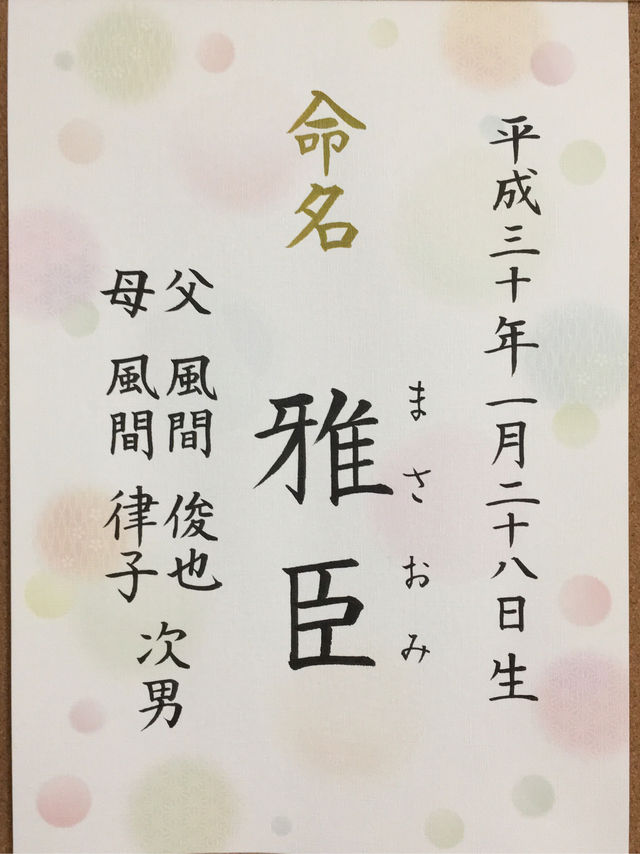 平成三十年一月二十八日生
命名
雅臣
まさおみ
父 風間 俊也
母 風間 律子
次男